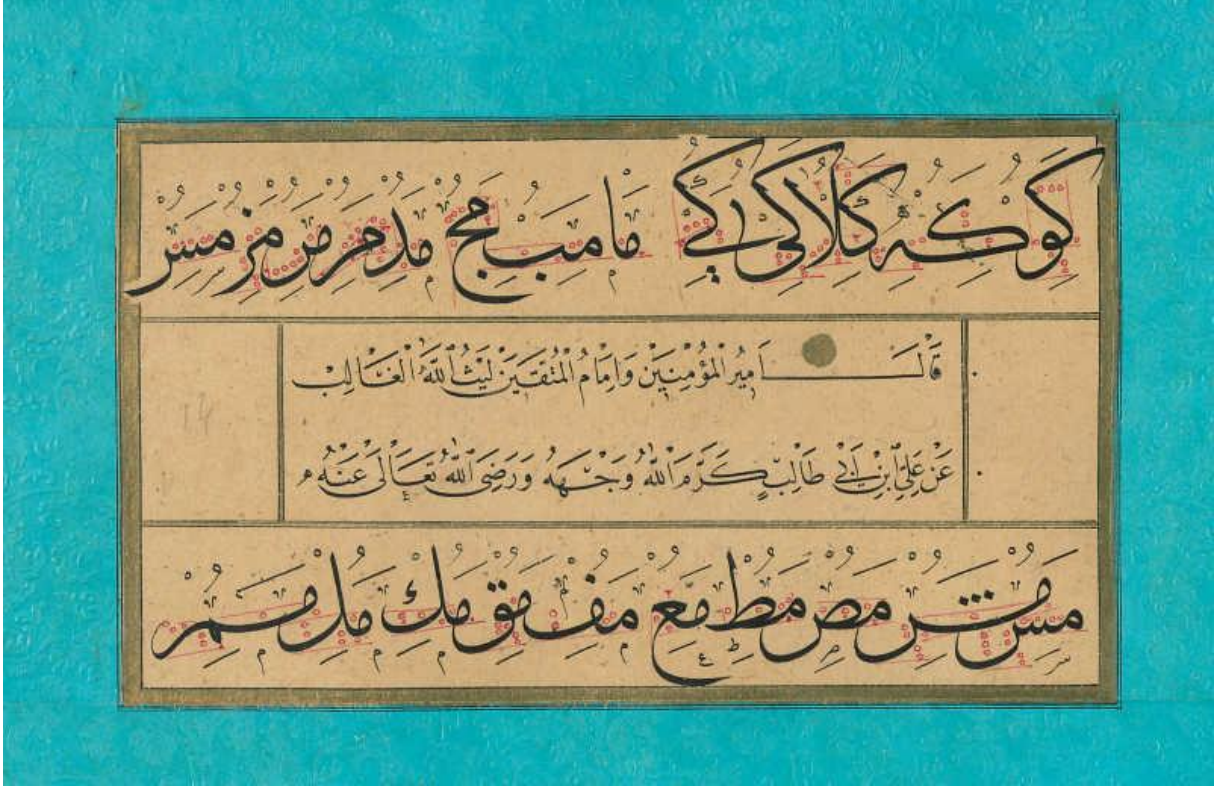 كو كه كلا كى لے ما مب مج مد مر مس مز مسر
قَالَ اَمِيرُ الْمُؤْمِنِيْنَ وَاِمَامُ الْمُتَّقِيَنَ لَيْثُ اللّٰهِ الْغَالِبِ
عَنْ عَلِيِّ ابْنِ اَبِى طَالِبٍ كَرَّمَ اللّٰهُ وَجْهَهُ وَرَضِىَ اللّٰهُ تَعَالٰى عَنْهُ
مس مص مط مع مف مق مك مل مم